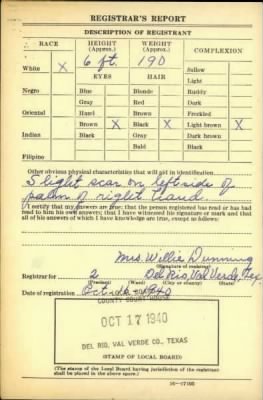 REGISTRAR'S REPORT
DESCRIPTION OF REGISTRANT
RACE HEIGHT (Approx.) WEIGHT (Approx.) COMPLEXION
White X 6 ft. 190 Sallow
EYES HAIR Light
Negro Blue Blonde Ruddy
Gray Red Dark
Oriental Hazel Brown Freckled
Brown X Black X Light brown X
Indian Black Gray Dark brown
Bald Black
Filipino
Other obvious physical characteristics that will aid in identification
Slight scar on left side of
palm of right hand.
I certify that my answers are true; that the person registered has read or has had
read to him his own answers; that I have witnessed his signature or mark and that
all of his answers of which I have knowledge are true, except as follows:
Mrs. Willie Dunning
(Signature of registrar)
Registrar for 2 Del Rio, Val Verde, Tex.
(Precinct) (Ward) (City or county) (State)
Date of registration Oct. 16 - 1940
COUNTY COURT HOUSE
OCT 17 1940
DEL RIO, VAL VERDE CO., TEXAS
(STAMP OF LOCAL BOARD)
(The stamp of the Local Board having jurisdiction of the registrant
shall be placed in the above space.)